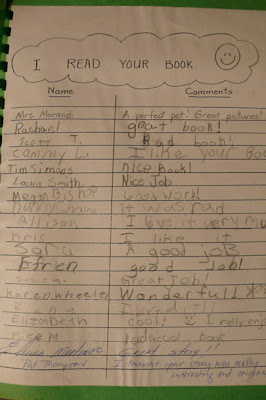 I READ YOUR BOOK.
Name Comments
Mrs. Morandi A perfect pet! Great pictures!
Rachael great book!
Scott T. Rad book!
Cammy L. I like your Boo
Tim Simons nice Book!
Laura Smith Nice Job
Megan Bishop Good work!
It was rad
Allison I love it very mu
Kris I like it
Sara A good job
Efren good Job!
Susie Great Job!
karen wheeler Wonderfull
I loved it!
Elizabeth cool! I relly enjo
radacal book
Great story!!
Pat Thompson I thought your story was really
interesting and origina